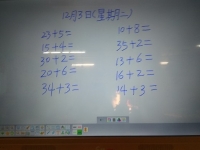 12月3日(星期二)
23+5=
15+4=
30+2=
20+6=
34+3=
10+8=
35+2=
13+6=
16+2=
14+3=